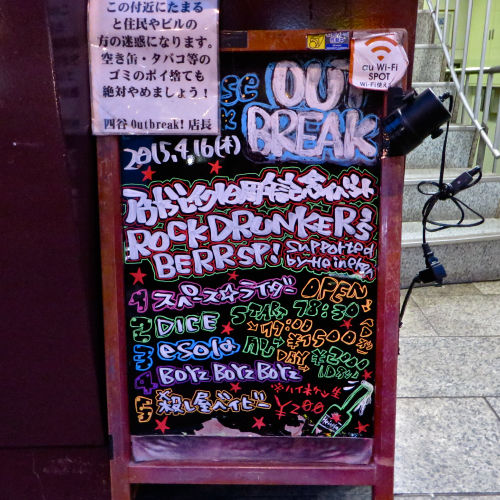 この付近にたまる
と住民やビルの
方の迷惑になります。
空き缶・タバコ等の
ゴミのポイ捨ても
絶対やめましょう!
四谷 Outbreak! 店長
au Wi-Fi
SPOT
Wi-Fi使える
OUT
BREAK
2015.4.16(木)
ROCKDRUNKER's
BERRSP! Supported
by Heineken
1 スペース☆ライダー
OPEN
2 DICE
START 18:30
19:00
3 esola
¥1500
DAY ¥2000
1Dつき
4 Borz Borz Borz
5 殺し屋ベイビー
※ハイネケン